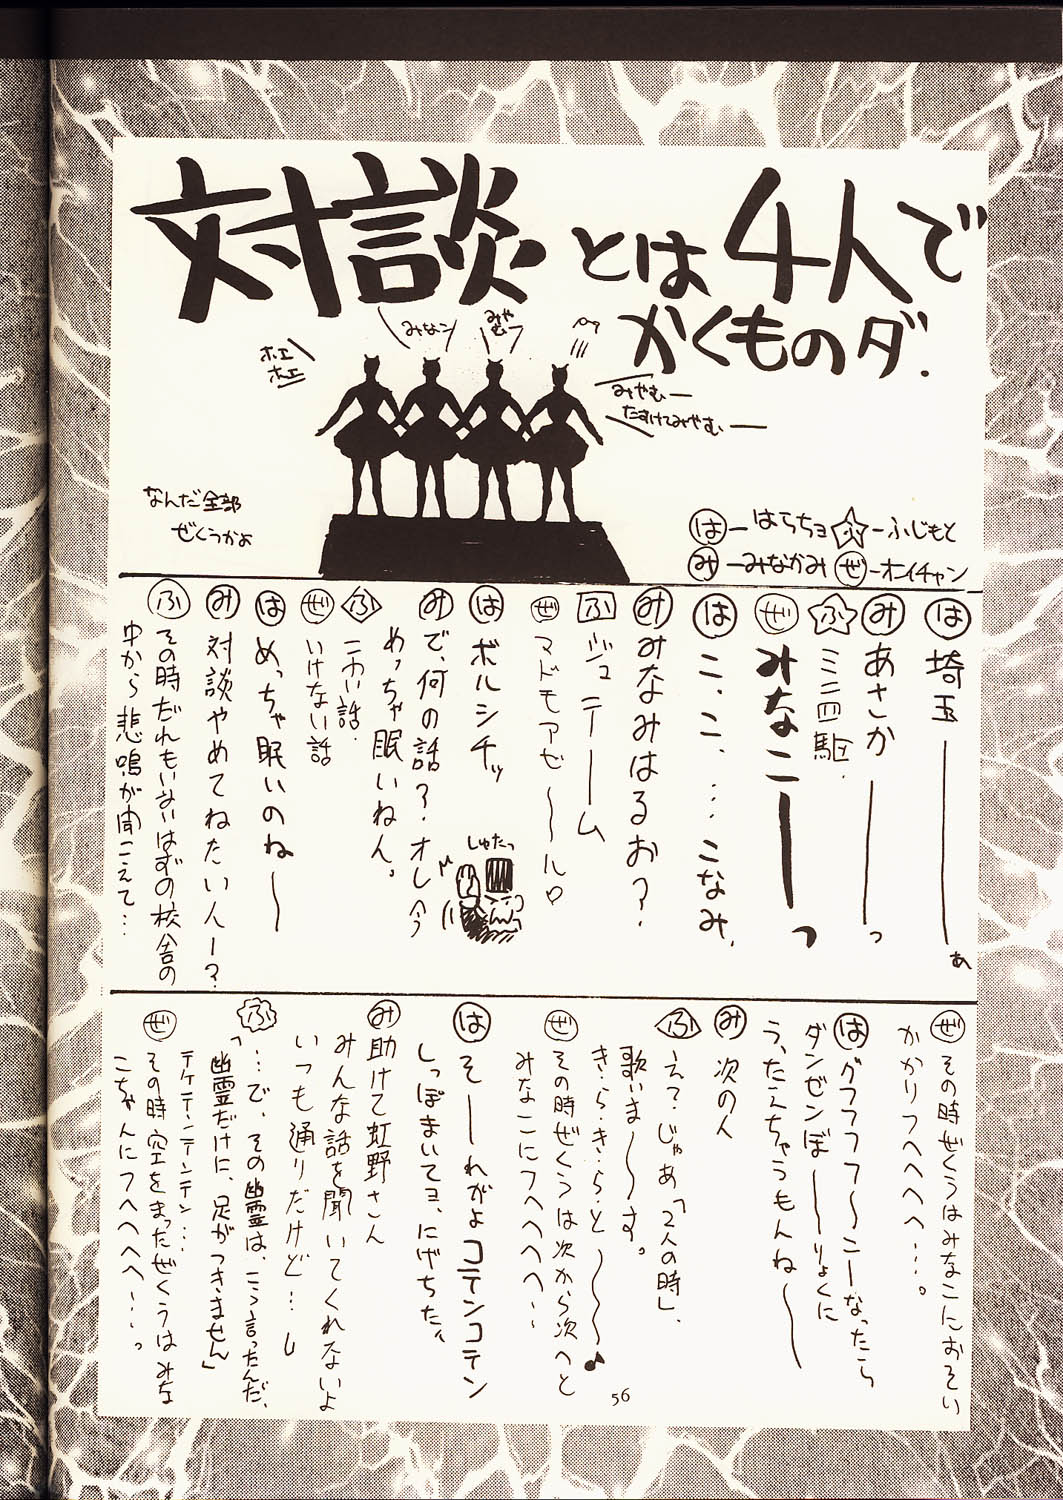 対談とは4人で
かくものダ.
ホエ
ホエ
みなこ
みや
むっ
みやむー
たすけてみやむー
なんだ全部
ぜくうかよ
は ー はらちョ ふ ー ふじもと
み ー みなかみ ぜ ー オイチャン
は 埼玉ーーーぁ
み あさかーーーっ
ふ ミニ四駆.
ぜ みなこーーーっ
は こ、こ、…こなみ.
み みなみはるお?
ふ ジュニーーム
ぜ マドモアゼ〜〜ル♡
は ボルシチッ
しゅたっ
み で、何の話?オレ今
めっちゃ眠いねん。
ふ こわい話.
ぜ いけない話
は めっちゃ眠いのね〜
み 対談やめてねたい人ー?
ふ その時だれもいないはずの校舎の
中から悲鳴が聞こえて…
ぜ その時ぜくうはみなこにおそい
かかりフヘヘヘヘ…。
は グフフフフ〜こーなったら
ダンゼンぼーーりょくに
う、たえちゃうもんね〜〜
み 次の人
ふ えっ?じゃあ「2人の時」.
歌いま〜〜す。
き・ら・き・ら・と〜〜〜♪
ぜ その時ぜくうは次から次へと
みなこにフヘヘヘヘヘ…
は そーーれがよコテンコテン
しっぽまいてョ、にげちたィ
み 助けて虹野さん
みんな話を聞いてくれないよ
いつも通りだけど…し
ふ 「…で、その幽霊は、こう言ったんだ、
幽霊だけに、足がつきません」
テケテンテンテンテン…
ぜ その時空をまったぜくうはみな
こちゃんにフヘヘヘヘ…っ
56